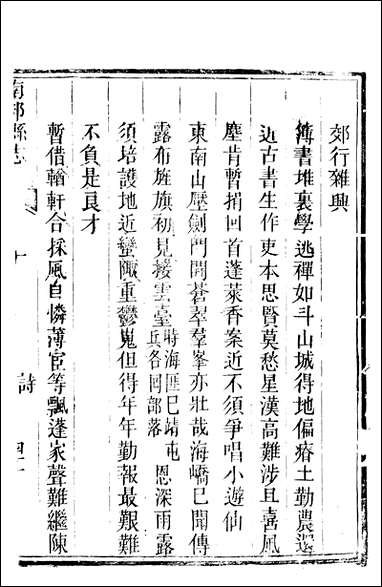 郊行雜興
簿書堆裏學逃禪如斗山城得地偏瘠土勤農還
近古書生作吏本思賢莫愁星漢高難涉且喜風
塵肯暫捐回首蓬萊香案近不須爭唱小遊仙
東南山壓劍門開蒼翠羣峯亦壯哉海嶠已聞傳
露布旌旗初見接雲臺時海匪已靖屯兵各囘部落恩深雨露
須培護地近蠻陬重鬱嵬但得年年勤報最艱難
不負是良才
暫借輶軒合採風自憐薄宦等飄蓬家聲難繼陳
南部縣志
詩